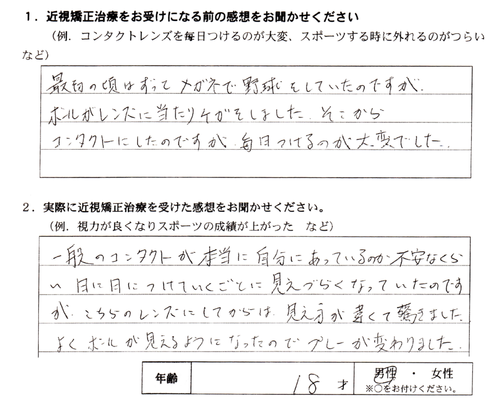 1．近視矯正治療をお受けになる前の感想をお聞かせください
（例．コンタクトレンズを毎日つけるのが大変、スポーツする時に外れるのがつらい
など）
最初の頃はずっとメガネで野球をしていたのですが、
ボールがレンズに当たりケガをしました。そこから
コンタクトにしたのですが、毎日つけるのが大変でした。
2．実際に近視矯正治療を受けた感想をお聞かせください。
（例．視力が良くなりスポーツの成績が上がった など）
一般のコンタクトが本当に自分にあっているのか不安なくら
い 日に日につけていくごとに見えづらくなっていたのです
が、こちらのレンズにしてからは、見え方が違くて驚きました。
よくボールが見えるようになったのでプレーが変わりました。
年齢 18才 男性 ・ 女性
※○をお付けください。